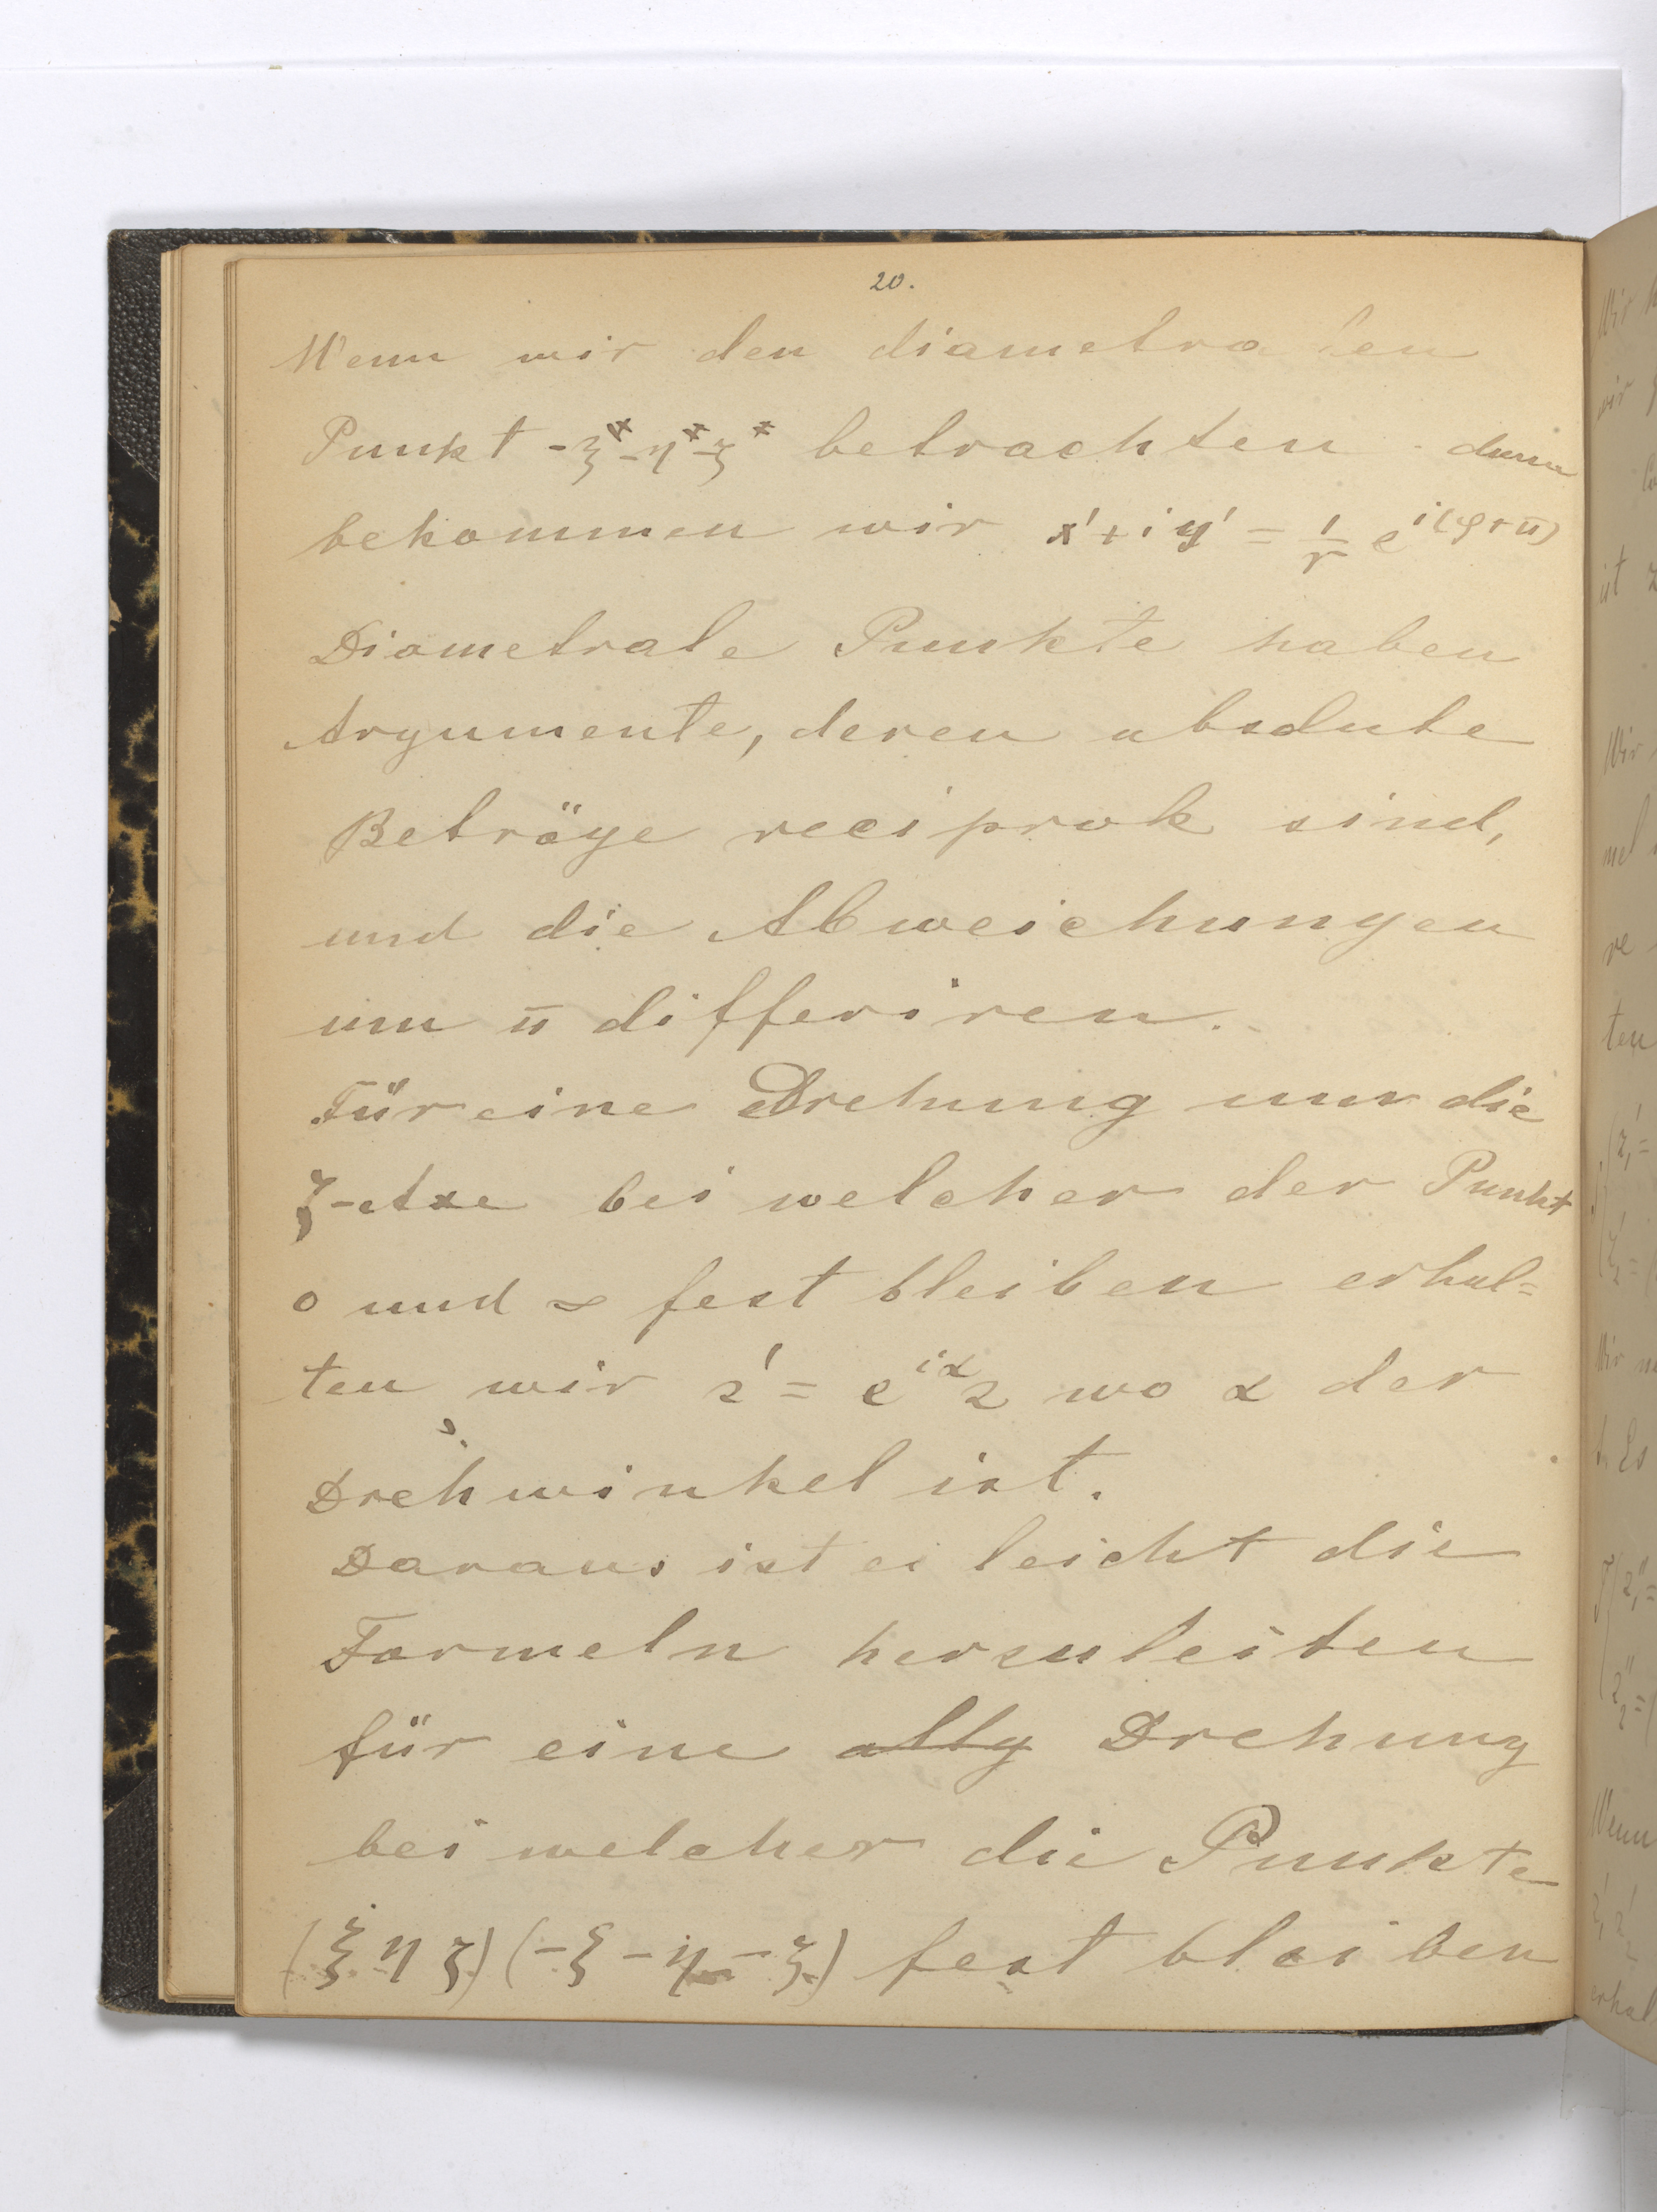 20.
Wenn wir den diametralen
Punkt -ξ* -η* -ζ* betrachten dann
bekommen wir x'+iy' = 1/r e^{i(φ+π)}
Diametrale Punkte haben
Argumente, deren absolute
Beträge reciprok sind,
und die Abweichungen
um π differiren.
Für eine Drehung um die
ζ-Axe bei welcher der Punkt
0 und ∞ fest bleiben erhal=
ten wir z' = e^{iα} z wo α der
Drehwinkel ist.
Daraus ist es leicht die
Formeln herzuleiten
für eine allg Drehung
bei welcher die Punkte
(ξ η ζ) (-ξ -η -ζ) fest bleiben